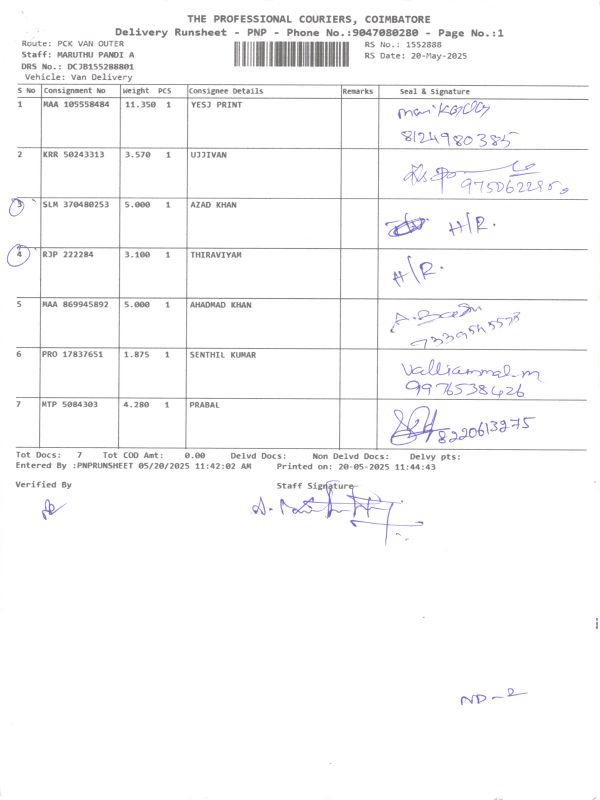 THE PROFESSIONAL COURIERS, COIMBATORE
Delivery Runsheet - PNP - Phone No.:9047080280 - Page No.:1
Route: PCK VAN OUTER RS No.: 1552888
Staff: MARUTHU PANDI A RS Date: 20-May-2025
DRS No.: DCJB155288801
Vehicle: Van Delivery
S No Consignment No Weight PCS Consignee Details Remarks Seal & Signature
1 MAA 105558484 11.350 1 YESJ PRINT
8124980385
2 KRR 50243313 3.570 1 UJJIVAN
3 SLM 370480253 5.000 1 AZAD KHAN H/R.
4 RJP 222284 3.100 1 THIRAVIYAM H/R.
5 MAA 869945892 5.000 1 AHADMAD KHAN
6 PRO 17837651 1.875 1 SENTHIL KUMAR Valliammal-m
9976538426
7 MTP 5084303 4.280 1 PRABAL 8220613275
Tot Docs: 7 Tot COD Amt: 0.00 Delvd Docs: Non Delvd Docs: Delvy pts:
Entered By :PNPRUNSHEET 05/20/2025 11:42:02 AM Printed on: 20-05-2025 11:44:43
Verified By Staff Signature
ND-2